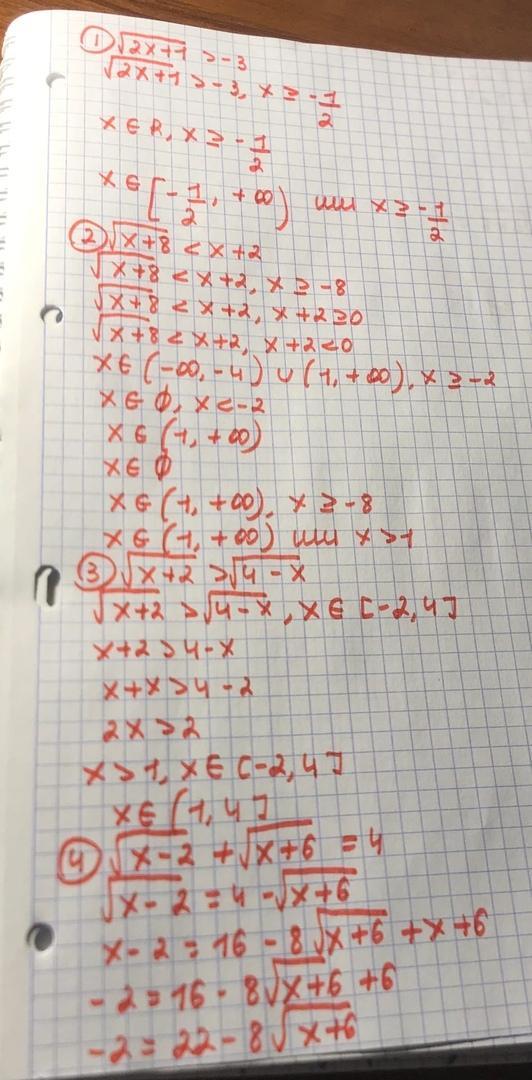 ① √2x+1 > -3
√2x+1 > -3, x ≥ -1/2
x ∈ R, x ≥ -1/2
x ∈ [-1/2, +∞) или x ≥ -1/2
② √x+8 < x+2
√x+8 < x+2, x ≥ -8
√x+8 < x+2, x+2 ≥ 0
√x+8 < x+2, x+2 < 0
x ∈ (-∞, -4) ∪ (1, +∞), x ≥ -2
x ∈ ∅, x < -2
x ∈ (1, +∞)
x ∈ ∅
x ∈ (1, +∞), x ≥ -8
x ∈ (1, +∞) или x > 1
③ √x+2 > √4-x
√x+2 > √4-x, x ∈ [-2, 4]
x+2 > 4-x
x+x > 4-2
2x > 2
x > 1, x ∈ [-2, 4]
x ∈ (1, 4]
④ √x-2 + √x+6 = 4
√x-2 = 4 - √x+6
x-2 = 16 - 8√x+6 + x+6
-2 = 16 - 8√x+6 + 6
-2 = 22 - 8√x+6